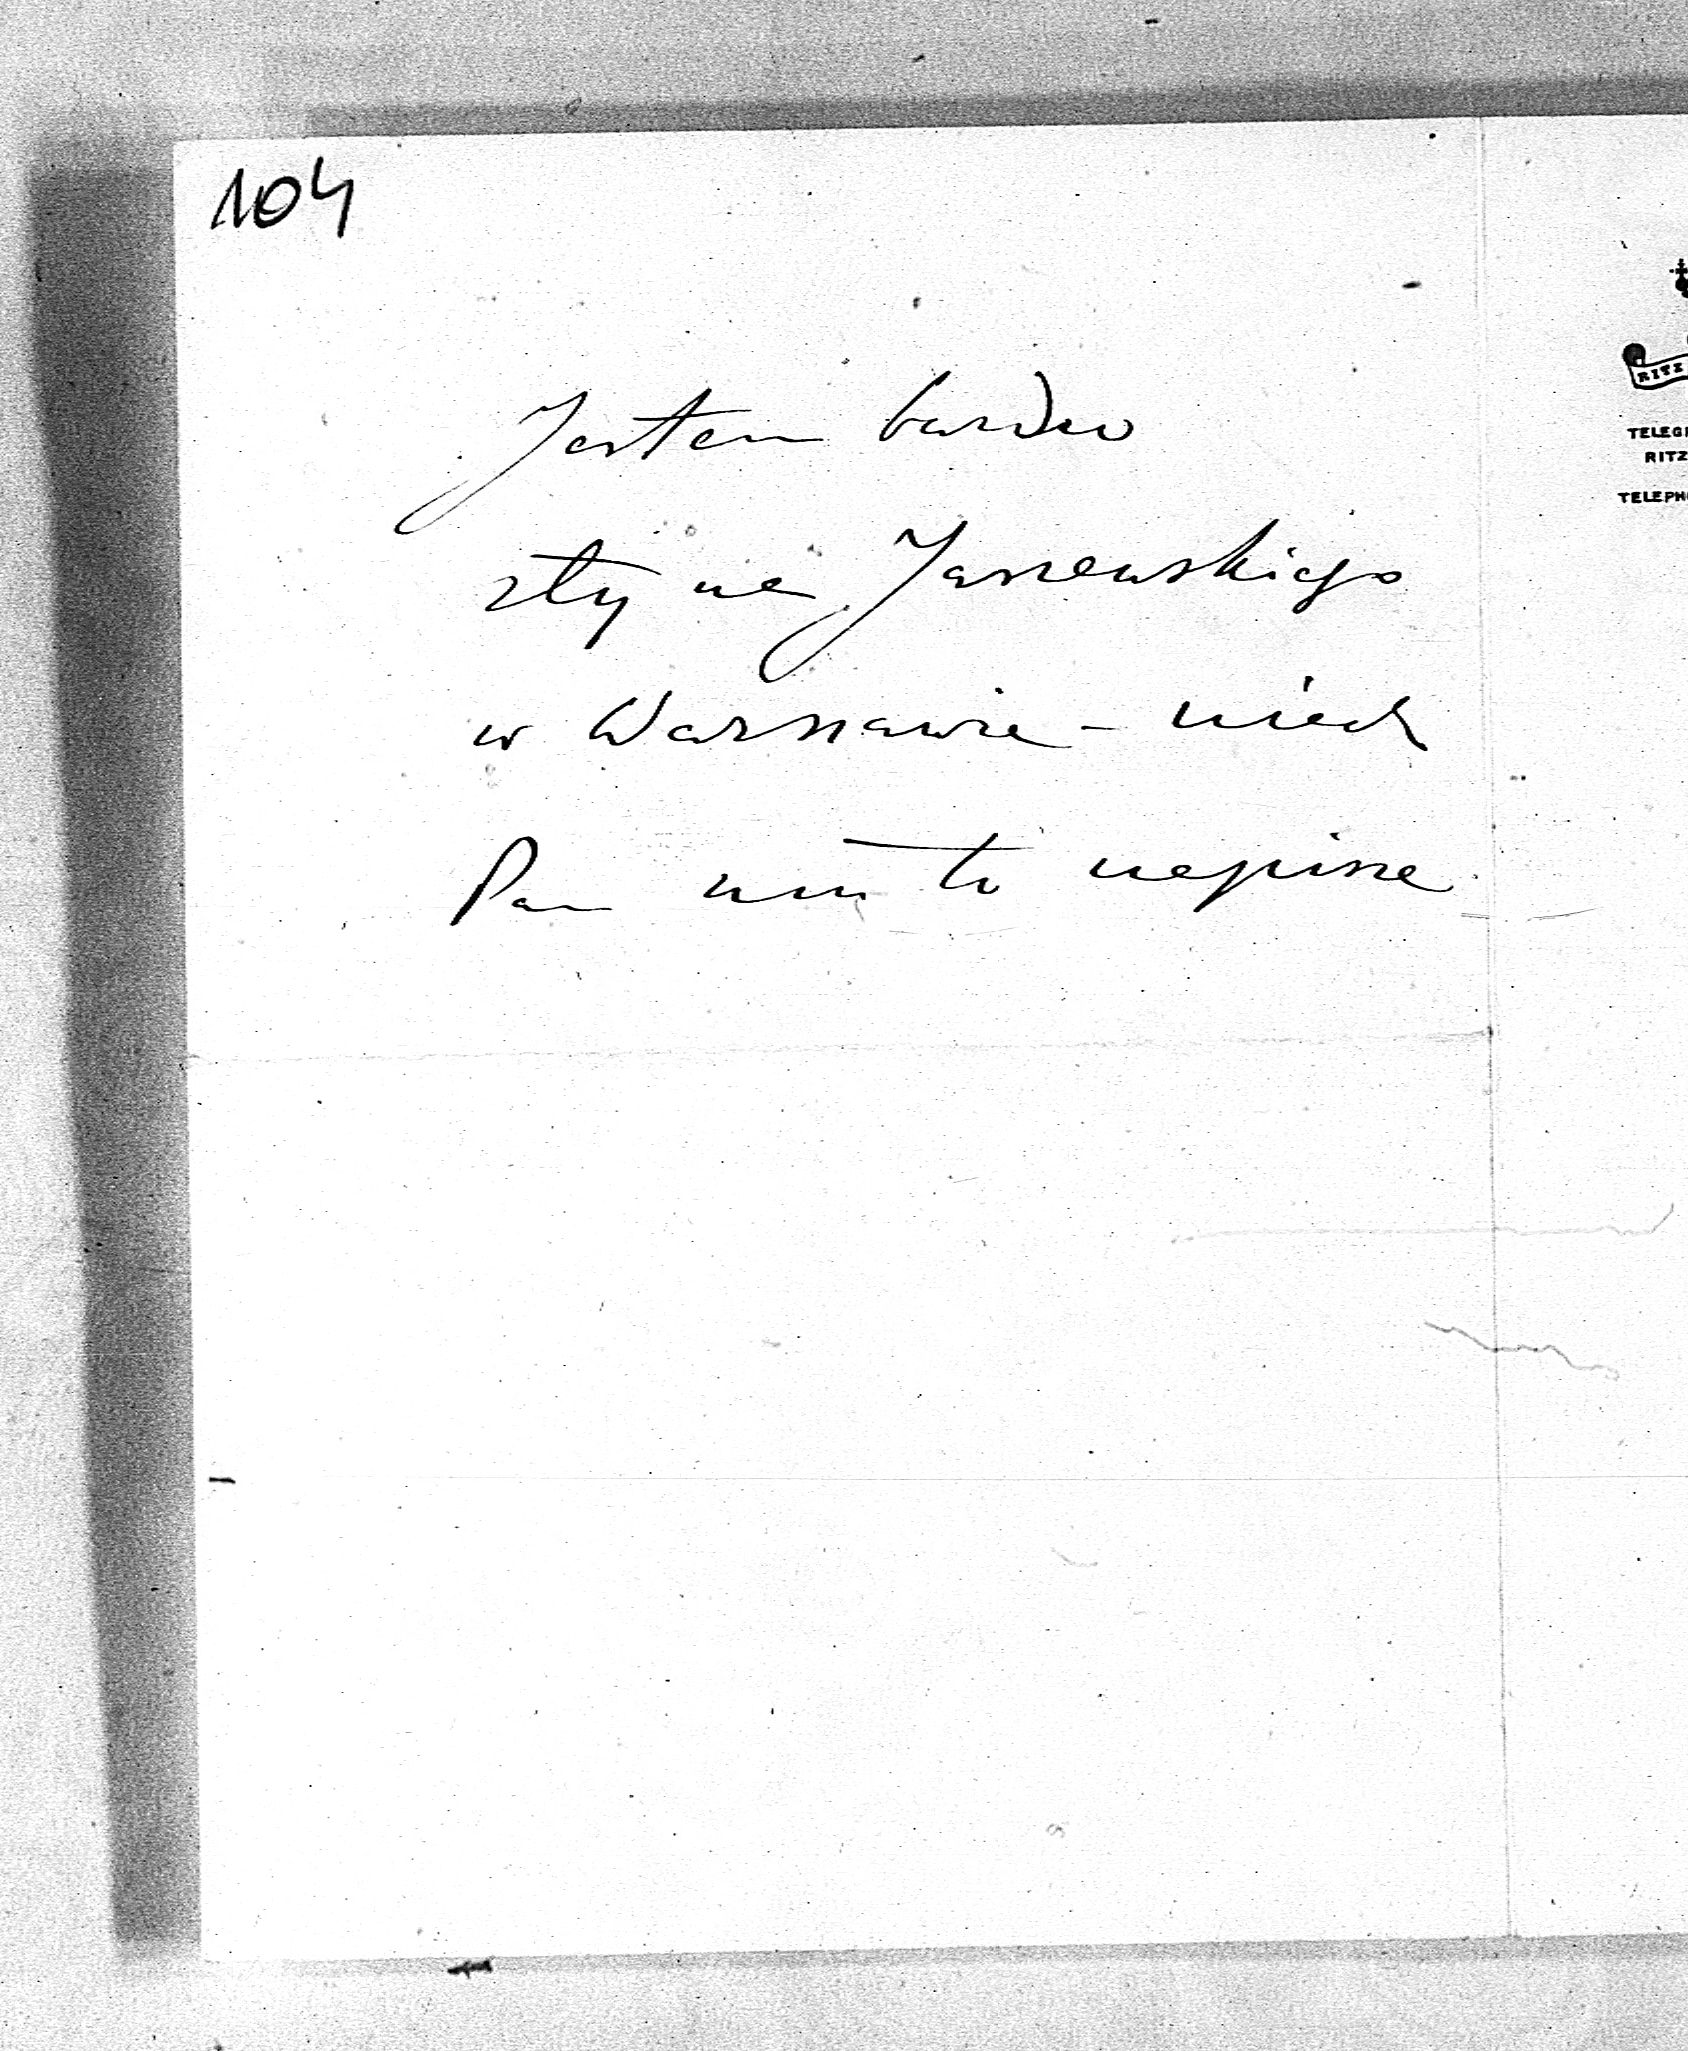 104
Jestem bardzo
zły na Jaszewskiego
w Warszawie - niech
Pan mu to napisze
RITZ
TELEG
RITZ
TELEPH